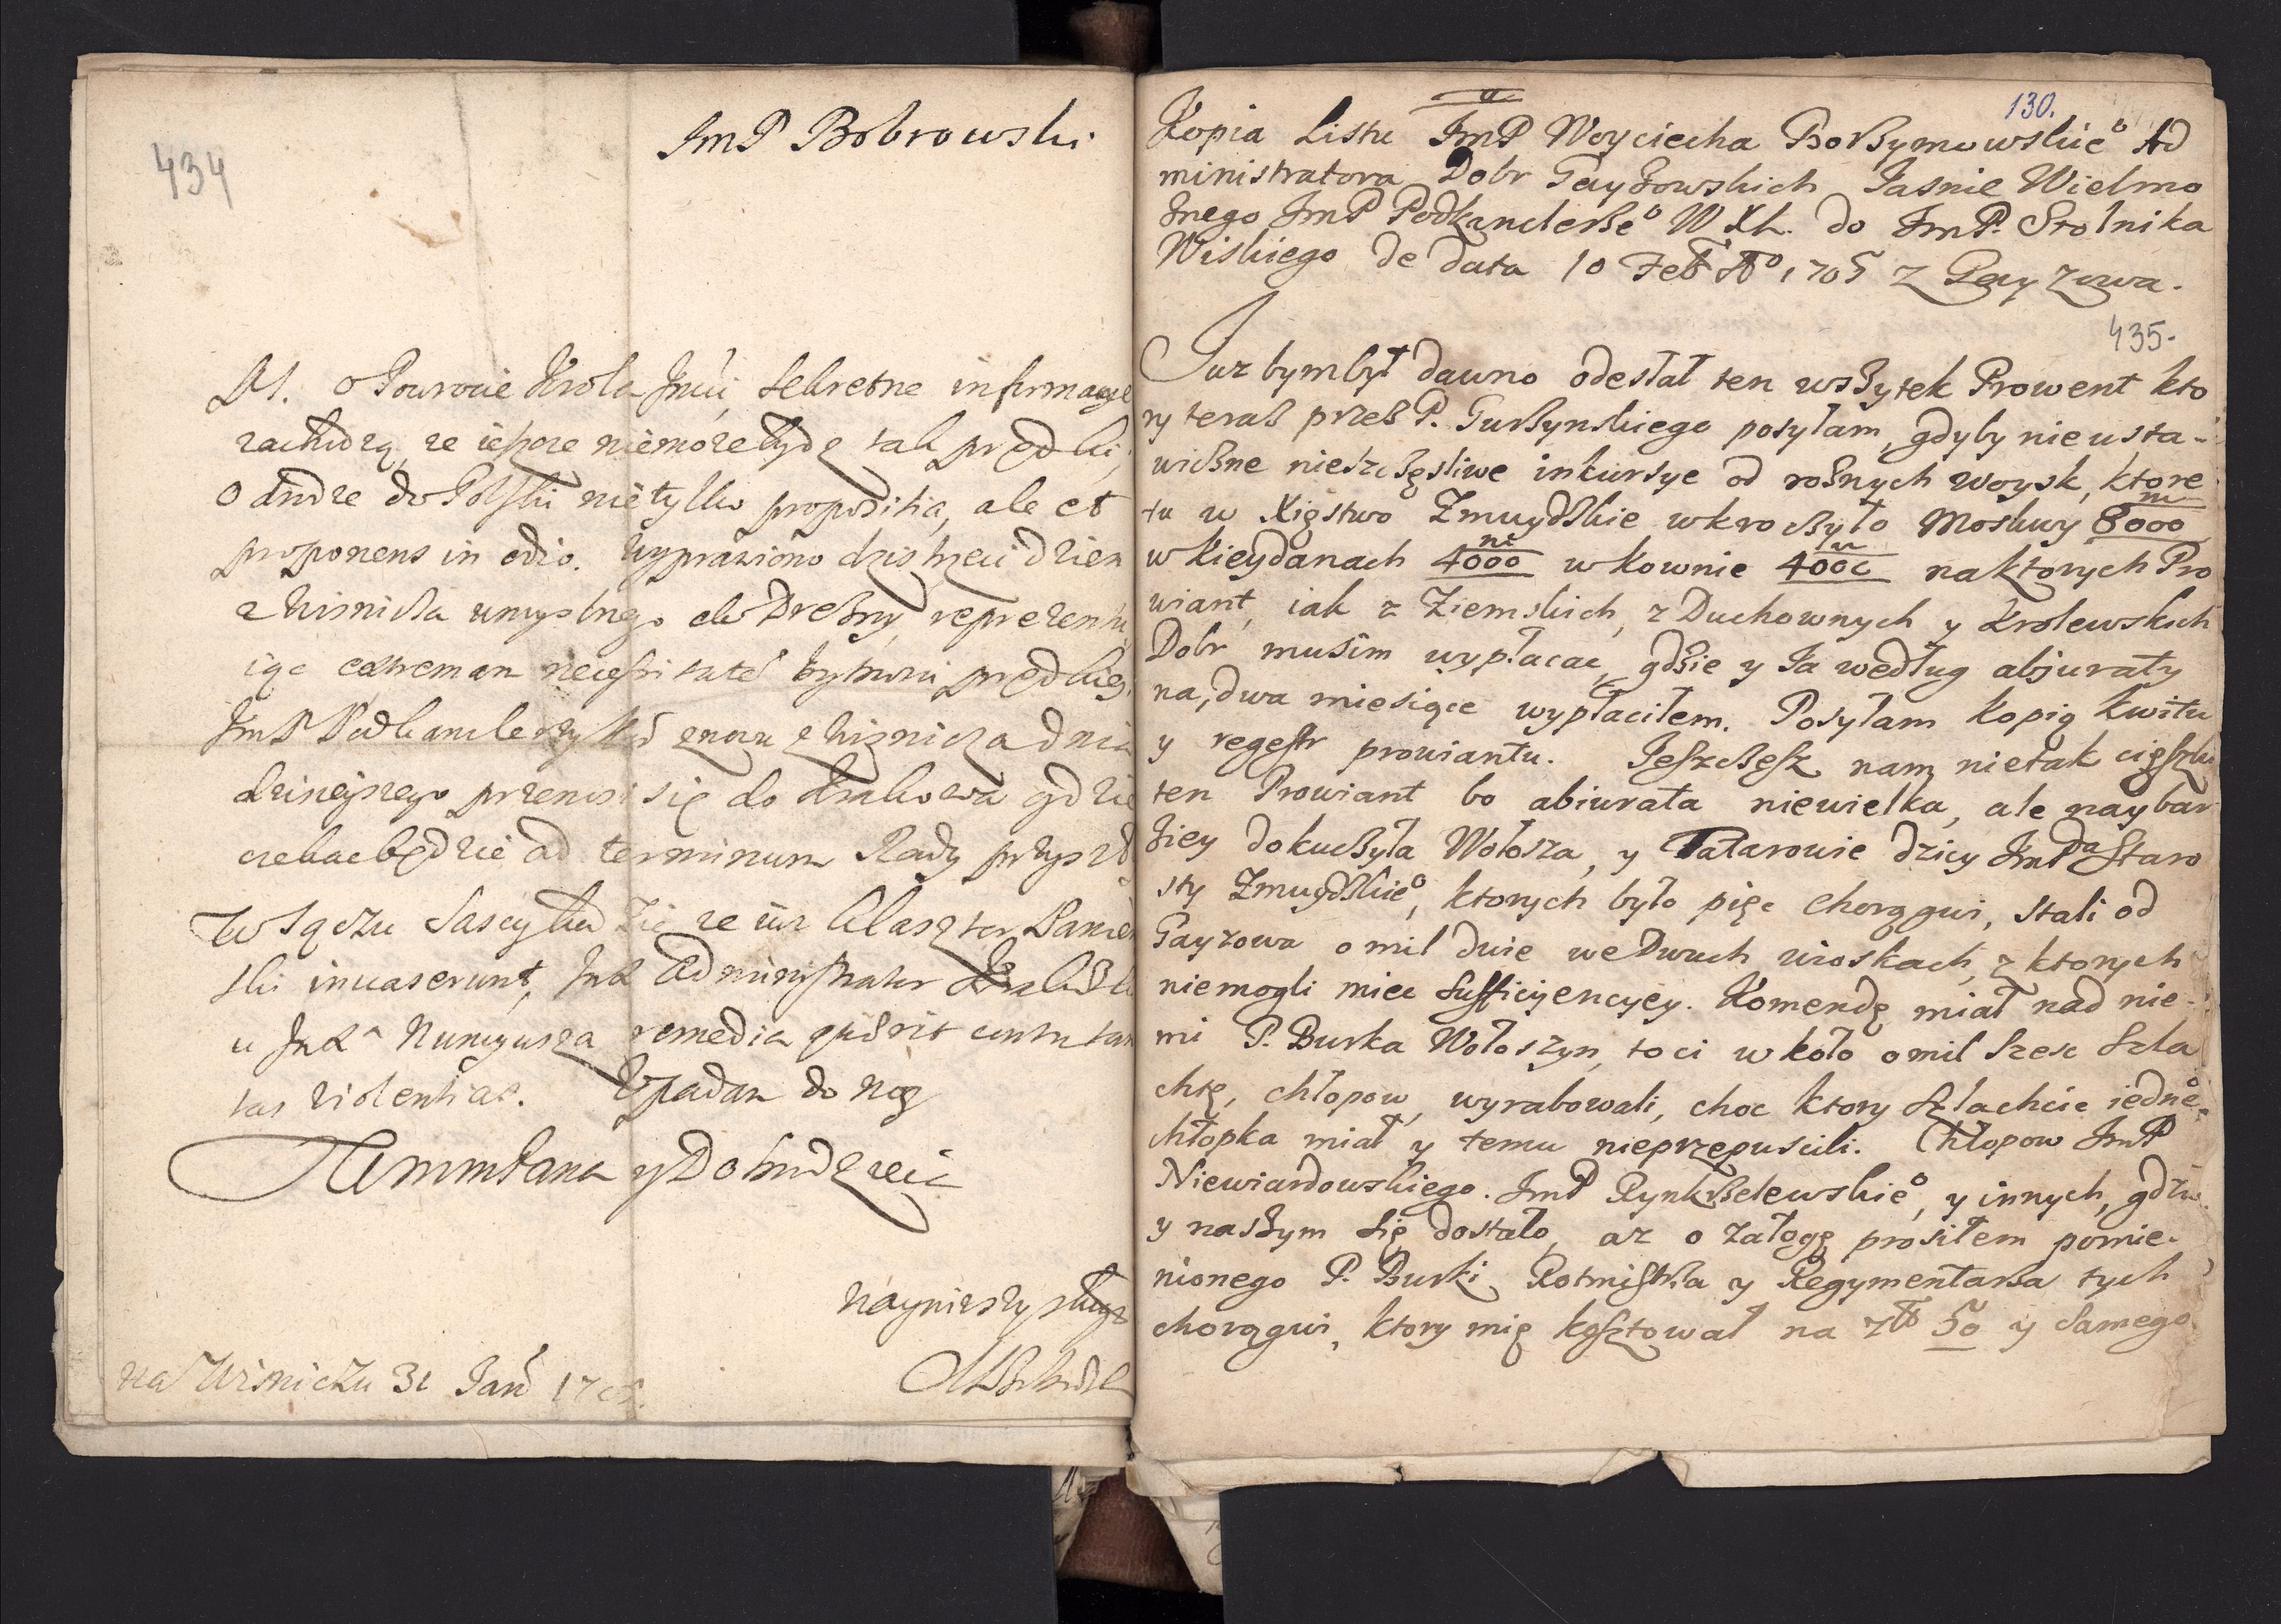 434
ImP Bobrowski
P.S. o Powrocie Krola Jmći sekretne informacye
zachodzą, że ieszcze niemoże bydz tak prędki,
o drodze do Polski nie tylko propositia, ale et
proponens in odio. Wyprawiono dzis trzeci dzien
z Wisnicza umyslnego do Drezny reprezentu
iąc extremam necessitatem bytnosci prędkiey.
ImP Podkanclerzy znowu z Wisnicza dnia
dzisieyszego przenosi się do Krakowa gdzie
czekac będzie ad terminum Rady przyszł
W Sączu Sascy ludzie że iuz Klasztor Panien
ski invaserunt, Administrator
u Nuncyusza remedia quaerit contra tan
tas violentias. Upadam do nog
Pana y Dobrodzieia
Nayniższy sługa
na Wisniczu 31 Jan 1705.
130.
Kopia Listu ImP Woyciecha Borzymowskieo Ad
ministratora Dobr Gayżowskich Jasnie Wielmo
żnego ImP Podkanclerzeo W X L. do ImP. Stolnika
Wiskiego de data 10 Feb Ao 1705 z Gayżowa.
435.
Juz bym był dawno odesłał ten wszytek Prowent kto
ry teraz przez P. Gurzynskiego posyłam, gdyby nie usta-
wiczne nieszczęsliwe inkursye od roznych woysk, ktore
tu w Xięstwo Zmuydzkie wkroczyło Moskwy 8000
w Kieydanach 4000 w Kownie 4000 na ktorych Pro
wiant, iak z Ziemskich, z Duchownych y Krolewskich
Dobr musim wypłacac, gdzie y Ja według abjuraty
na, dwa miesiące wypłaciłem. Posyłam kopią kwitu
y regestr prowiantu. Jeszczesz nam nie tak cięszki
ten Prowiant bo abiurata niewielka, ale naybar
ziey dokuczyła Wołosza, y Tatarowie dzicy ImPda Staro
sty Zmuydzkieo, ktorych było pięc chorągwi, stali od
Gayzowa o mil dwie we Dwuch wioskach, z ktorych
niemogli miec sufficyencyey. Komendę miał nad nie-
mi P. Burka Wołoszyn, to ci w koło o mil szesc szla
chtę, chłopow, wyrabowali, choc ktory szlachcic iedneo
chłopka miał y temu nieprzepuscili. Chłopow ImP
Niewiardowskiego. ImP Rynkszelewskieo, y innych, gdzie
y naszym się dostało, az o załogę prosiłem pomie-
nionego P. Burki Rotmistrza y Regymentarza tych
chorągwi, ktory mię kosztował na zł 50 y samego